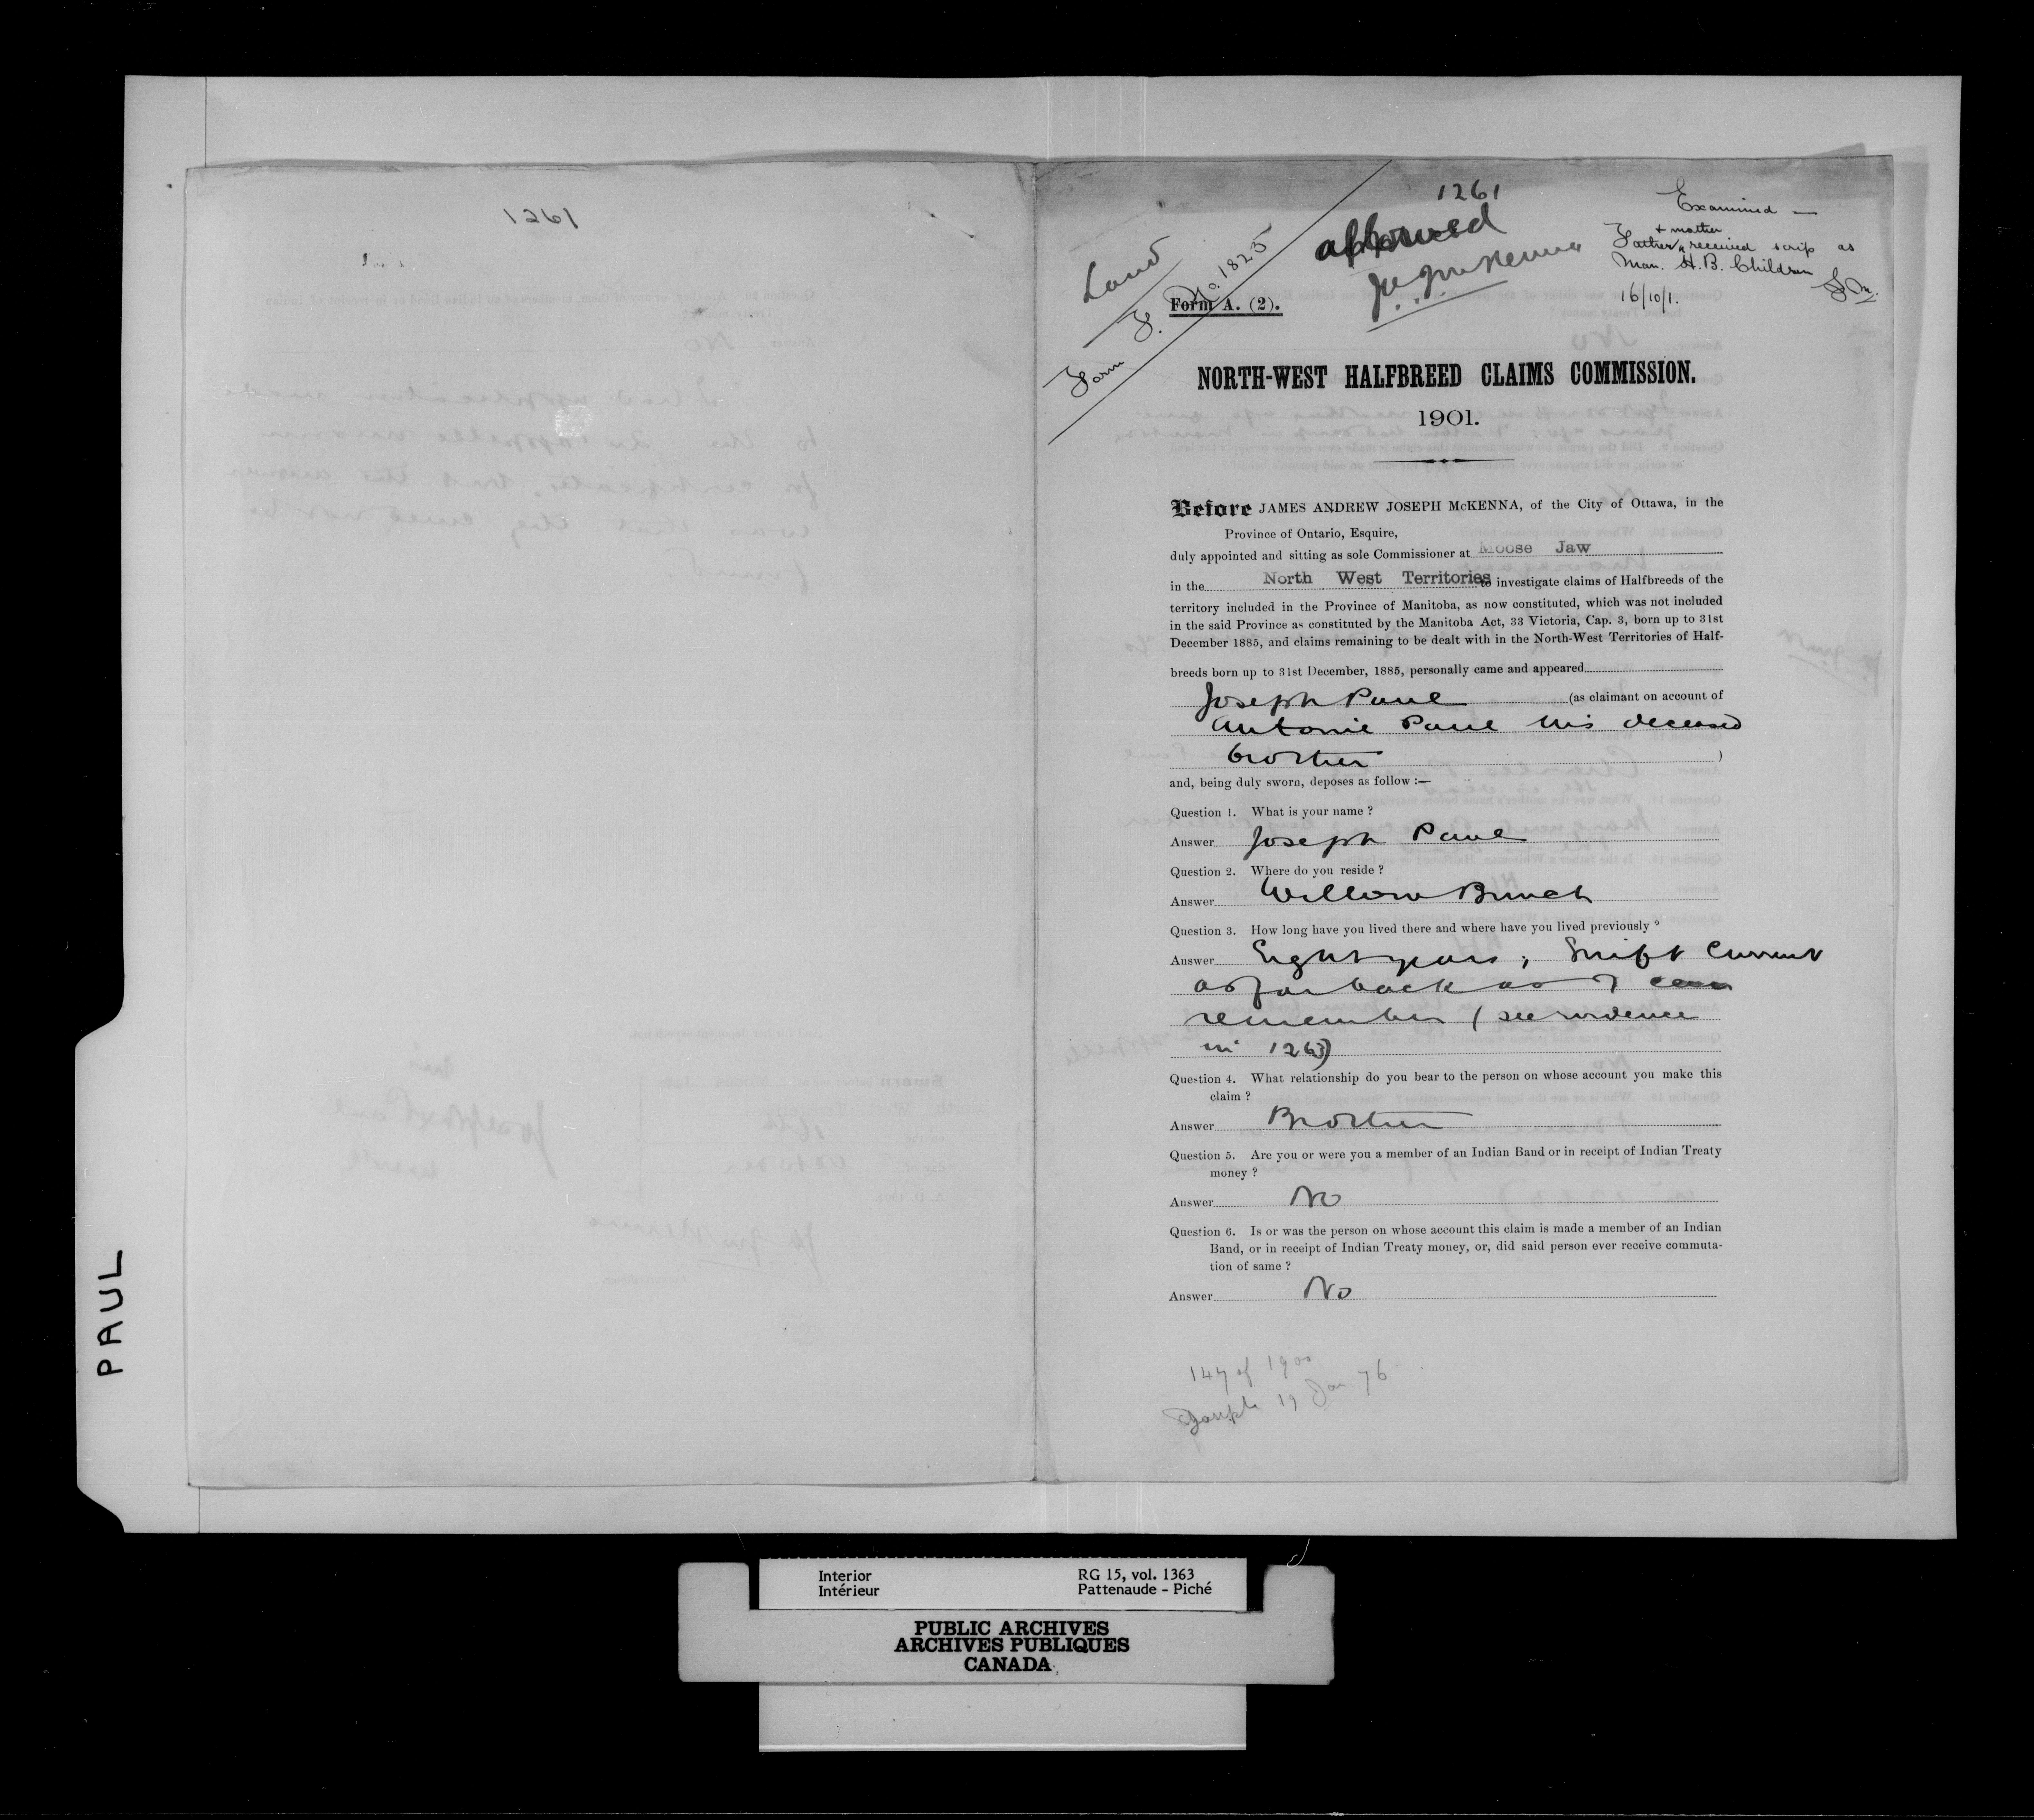 1261
1261
approved
J.A.J. McKenna
Examined —
+ mother
Father received scrip as
Man. H.B. Children
16/10/1.
Land
Form F. No. 1825
Form A. (2).
NORTH-WEST HALFBREED CLAIMS COMMISSION.
1901.
Before JAMES ANDREW JOSEPH McKENNA, of the City of Ottawa, in the
Province of Ontario, Esquire,
duly appointed and sitting as sole Commissioner at Moose Jaw
in the North West Territories to investigate claims of Halfbreeds of the
territory included in the Province of Manitoba, as now constituted, which was not included
in the said Province as constituted by the Manitoba Act, 33 Victoria, Cap. 3, born up to 31st
December 1885, and claims remaining to be dealt with in the North-West Territories of Half-
breeds born up to 31st December, 1885, personally came and appeared
Joseph Paul (as claimant on account of
Antonie Paul his deceased
brother )
and, being duly sworn, deposes as follow :—
Question 1. What is your name ?
Answer Joseph Paul
Question 2. Where do you reside ?
Answer Willow Bunch
Question 3. How long have you lived there and where have you lived previously ?
Answer Eight years; Swift Current
as far back as I can
remember (see evidence
in 1263)
Question 4. What relationship do you bear to the person on whose account you make this
claim ?
Answer Brother
Question 5. Are you or were you a member of an Indian Band or in receipt of Indian Treaty
money ?
Answer No
Question 6. Is or was the person on whose account this claim is made a member of an Indian
Band, or in receipt of Indian Treaty money, or, did said person ever receive commuta-
tion of same ?
Answer No
147 of 1900
Joseph 19 Jan 76
PAUL
Interior
Intérieur
RG 15, vol. 1363
Pattenaude - Piché
PUBLIC ARCHIVES
ARCHIVES PUBLIQUES
CANADA